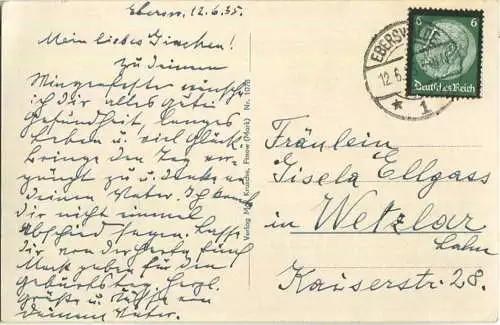 Ebersw. 12.6.35.
Mein liebes Giselchen!
zu deinem
Wiegenfeste wünsche
ich dir alles gute
Gesundheit, langes
Leben u. viel Glück.
Bringe den Tag ver-
gnügt zu u. denke an
deinen Vater. Ich kann
dir nicht einmal
Abschied sagen. Lasse
dir von der fünf
Mark geben für den
Geburtstag. Herzl.
Grüße u. Küsse von
deinem Vater.
Verlag Max Krausche, Finow (Mark) Nr. 1076
EBERSWALDE
12.6.
1
6 6
Deutsches Reich
Fräulein
Gisela Ellgass
in Wetzlar
Lahn
Kaiserstr. 28.